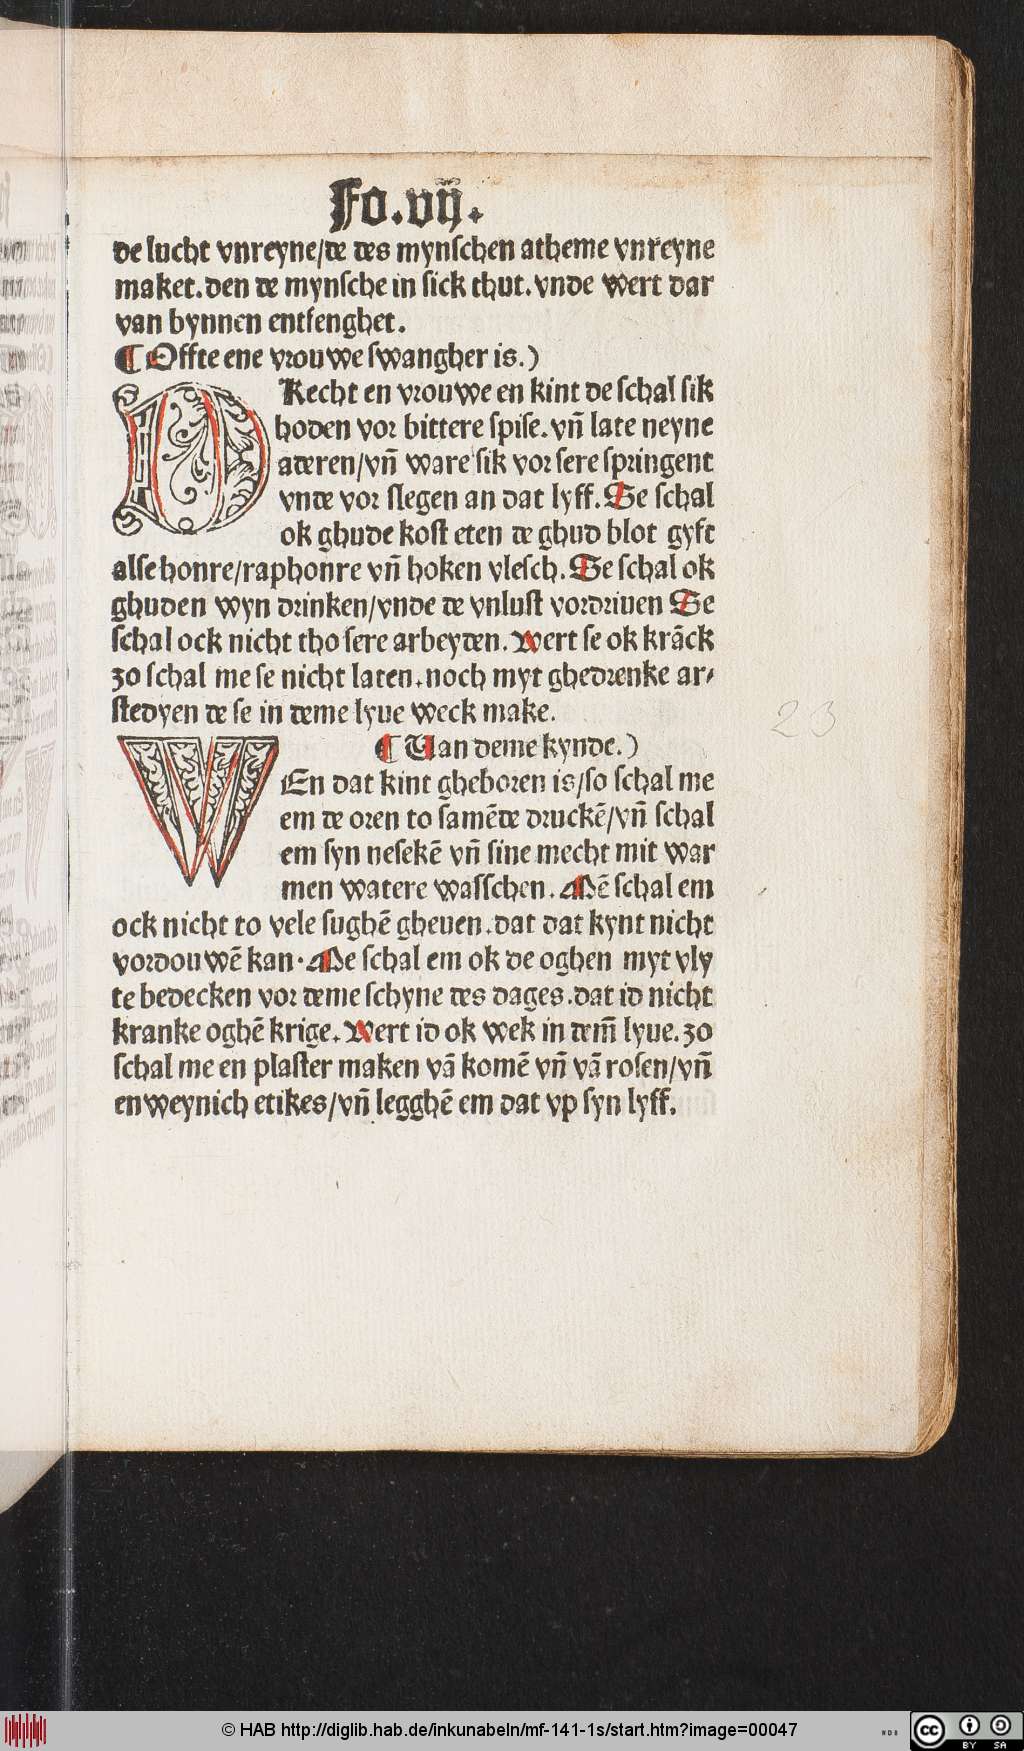 Fo.vij.
de lucht vnreyne/de des mynschen atheme vnreyne
maket.den de mynsche in sick thut.vnde wert dar
van bynnen entfenghet.
¶ Offte ene vrouwe swangher is.)
DRecht en vrouwe en kint de schal sik
hoden vor bittere spise.vñ late neyne
aderen/vñ ware sik vor sere springent
vnde vor slegen an dat lyff.Se schal
ok ghude kost eten de ghud blot gyft
alse honre/raphonre vñ hoken vlesch.Se schal ok
ghuden wyn drinken/vnde de vnlust vordriuen Se
schal ock nicht tho sere arbeyden.Wert se ok krãck
zo schal me se nicht laten.noch myt ghedrenke ar/
stedyen de se in deme lyue weck make.
¶ Uan deme kynde.)
WEn dat kint gheboren is/so schal me
em de oren to samẽde druckẽ/vñ schal
em syn nesekẽ vñ sine mecht mit war
men watere wasschen.Mẽ schal em
ock nicht to vele sughẽ gheuen.dat dat kynt nicht
vordouwẽ kan.Me schal em ok de oghen myt vly
te bedecken vor deme schyne des dages.dat id nicht
kranke oghẽ krige.Wert id ok wek in dem̃ lyue.zo
schal me en plaster maken vã komẽ vñ vã rosen/vñ
en weynich etikes/vñ legghẽ em dat vp syn lyff.
23
© HAB http://diglib.hab.de/inkunabeln/mf-141-1s/start.htm?image=00047
WDB
cc
BY SA